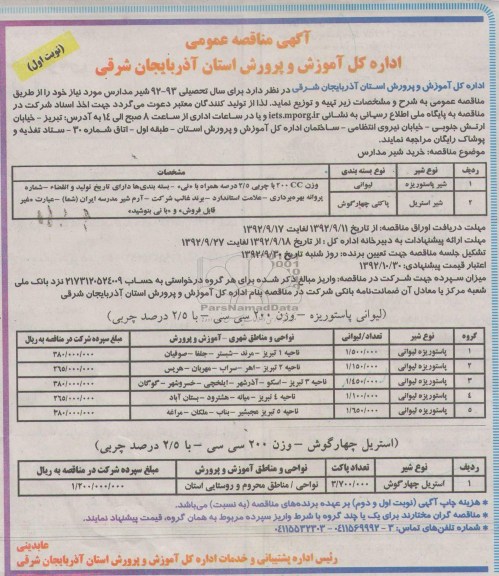 آگهی مناقصه عمومی
(نوبت اول)
اداره کل آموزش و پرورش استان آذربایجان شرقی
اداره کل آموزش و پرورش استان آذربایجان شرقی در نظر دارد برای سال تحصیلی ۹۳-۹۲ شیر مدارس مورد نیاز خود را از طریق
مناقصه عمومی به شرح و مشخصات زیر تهیه و توزیع نماید. لذا از تولید کنندگان معتبر دعوت می‌گردد جهت اخذ اسناد شرکت در
مناقصه به پایگاه ملی اطلاع رسانی به نشانی iets.mporg.ir و یا در ساعات اداری از ساعت ۸ صبح الی ۱۴ به آدرس: تبریز - خیابان
ارتش جنوبی - خیابان نیروی انتظامی - ساختمان اداره کل آموزش و پرورش استان - طبقه اول - اتاق شماره ۳۰ - ستاد تغذیه و
پوشاک رایگان مراجعه نمایند.
موضوع مناقصه: خرید شیر مدارس
ردیف نوع شیر نوع بسته بندی مشخصات
۱ شیر پاستوریزه لیوانی
۲ شیر استریل پاکتی چهارگوش
وزن ۲۰۰ CC با چربی ۲/۵ درصد همراه با «نی» - بسته بندی‌ها دارای تاریخ تولید و انقضاء - شماره
پروانه بهره‌برداری - علامت استاندارد - برند غالب شرکت - آرم شیر مدرسه ایران (شما) - عبارت «غیر
قابل فروش» و «با نی بنوشید»
مهلت دریافت اوراق مناقصه: از تاریخ ۱۳۹۲/۹/۱۱ لغایت ۱۳۹۲/۹/۱۷
مهلت ارائه پیشنهادات به دبیرخانه اداره کل: از تاریخ ۱۳۹۲/۹/۱۸ لغایت ۱۳۹۲/۹/۲۷
تشکیل جلسه مناقصه جهت تعیین برنده: روز شنبه تاریخ ۱۳۹۲/۹/۳۰
اعتبار قیمت پیشنهادی: ۱۳۹۲/۱۰/۳۰
میزان سپرده جهت شرکت در مناقصه: واریز مبالغ ذکر شده برای هر گروه درخواستی به حساب ۲۱۷۳۱۲۰۵۲۴۰۰۹ نزد بانک ملی
شعبه مرکز یا معادل آن ضمانت‌نامه بانکی شرکت در مناقصه بنام اداره کل آموزش و پرورش استان آذربایجان شرقی
ParsNamadData
(لیوانی پاستوریزه - وزن ۲۰۰ سی سی - با ۲/۵ درصد چربی)
گروه نوع شیر تعداد/لیوانی نواحی و مناطق شهری - آموزش و پرورش مبلغ سپرده شرکت در مناقصه به ریال
۱ پاستوریزه لیوانی ۱/۵۰۰/۰۰۰ ناحیه ۱ تبریز - مرند - شبستر - جلفا - صوفیان ۳۸۰/۰۰۰/۰۰۰
۲ پاستوریزه لیوانی ۱/۱۵۰/۰۰۰ ناحیه ۲ تبریز - اهر - سراب - مهربان - هریس ۲۶۵/۰۰۰/۰۰۰
۳ پاستوریزه لیوانی ۱/۴۵۰/۰۰۰ ناحیه ۳ تبریز - اسکو - آذرشهر - ایلخچی - خسروشهر - گوگان ۳۸۰/۰۰۰/۰۰۰
۴ پاستوریزه لیوانی ۱/۱۰۰/۰۰۰ ناحیه ۴ تبریز - میانه - هشترود - بستان آباد ۲۶۵/۰۰۰/۰۰۰
۵ پاستوریزه لیوانی ۱/۶۵۰/۰۰۰ ناحیه ۵ تبریز عجبشیر - بناب - ملکان - مراغه ۳۸۰/۰۰۰/۰۰۰
(استریل چهارگوش - وزن ۲۰۰ سی سی - با ۲/۵ درصد چربی)
ردیف نوع شیر تعداد پاکت نواحی و مناطق آموزش و پرورش مبلغ سپرده شرکت در مناقصه به ریال
۱ استریل چهارگوش ۳/۷۰۰/۰۰۰ نواحی / مناطق محروم و روستایی استان ۱/۲۰۰/۰۰۰/۰۰۰
* هزینه چاپ آگهی (نوبت اول و دوم) بر عهده برنده‌های مناقصه (به نسبت) می‌باشد.
* مناقصه گران مختارند برای یک یا چند گروه با شرط واریز سپرده مربوط به همان گروه، قیمت پیشنهاد نمایند.
* شماره تلفن‌های تماس: ۳ - ۰۴۱۱۵۶۹۹۹۲ - ۰۴۱۱۵۵۳۲۳۰۳
عابدینی
رئیس اداره پشتیبانی و خدمات اداره کل آموزش و پرورش استان آذربایجان شرقی